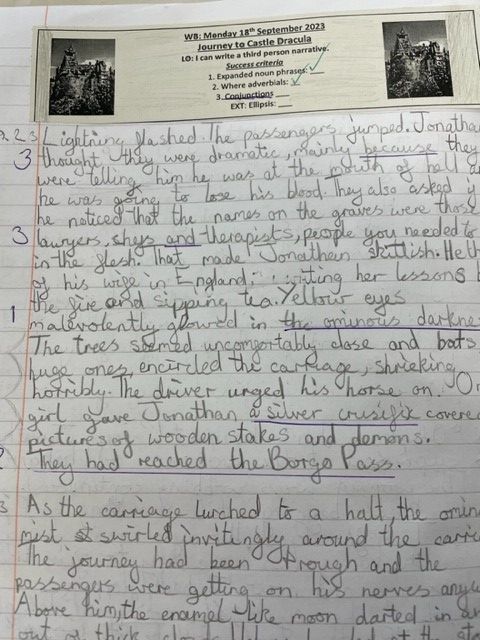 WB: Monday 18th September 2023
Journey to Castle Dracula
LO: I can write a third person narrative.
Success criteria
1. Expanded noun phrases: ✓
2. Where adverbials: ✓
3. Conjunctions
EXT: Ellipsis:
1, 2, 3 Lightning flashed. The passengers jumped. Jonathan
3 thought they were dramatic, mainly because they
were telling him he was at the mouth of hell a
he was going to lose his blood. They also asked
he noticed that the names on the graves were those
3 lawyers, and therapists, people you needed to
in the flesh. That made Jonathan skittish. He th
of his wife in England: writing her lessons b
the fire and sipping tea. Yellow eyes
1 malevolently glowed in the ominous darkne
The trees seemed uncomfortably close and bats
huge ones, encircled the carriage, shrieking
horribly. The driver urged his horse on. On
girl gave Jonathan a silver crusifix covere
pictures of wooden stakes and demons.
2 They had reached the Borgo Pass.
3 As the carriage lurched to a halt, the omin
mist swirled invitingly around the carri
The journey had been through and the
passengers were getting on his nerves any
Above him, the enamel-like moon darted in an
out of thick